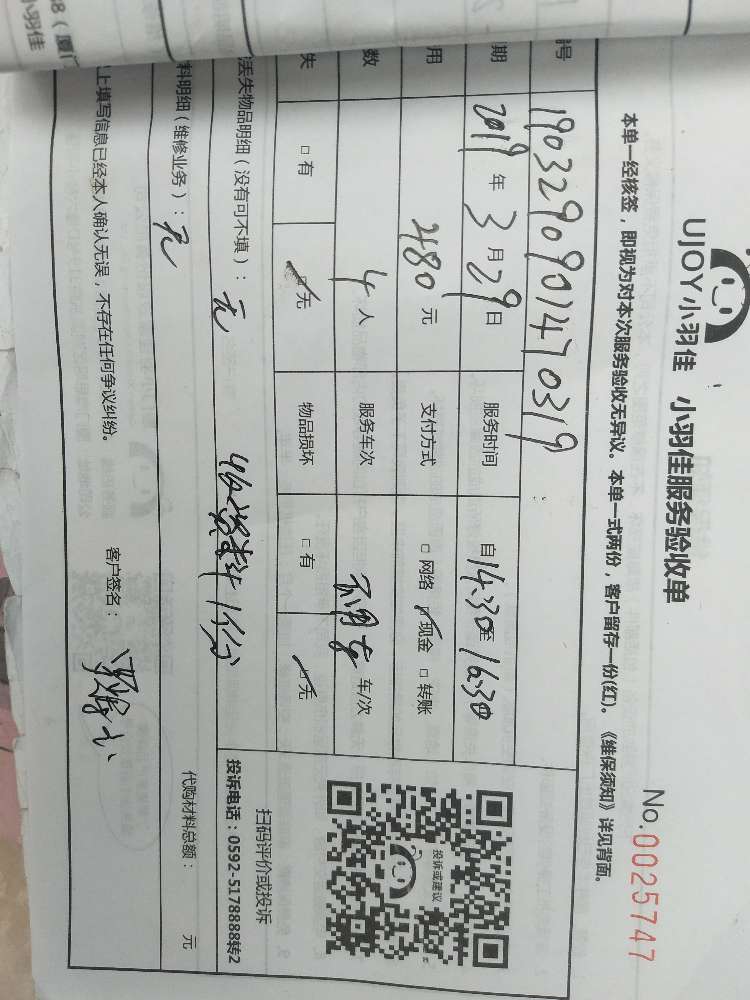 UJOY小羽佳 小羽佳服务验收单
No.0025747
本单一经核签，即视为对本次服务验收无异议。本单一式两份，客户留存一份(红)。《维保须知》详见背面。
号 19032909014470319
期 2019年3月29日 服务时间 自14:30至16:30
用 480元 支付方式 □网络 ☑现金 □转账
数 4人 服务车次 不用车 车/次
失 □有 ☑无 物品损坏 □有 ☑无
投诉或建议
扫码评价或投诉
投诉电话：0592-5178888转2
丢失物品明细（没有可不填）：无
料明细（维修业务）：无
代购材料总额： 元
上填写信息已经本人确认无误，不存在任何争议纠纷。 客户签名：
8（厦门
小羽佳